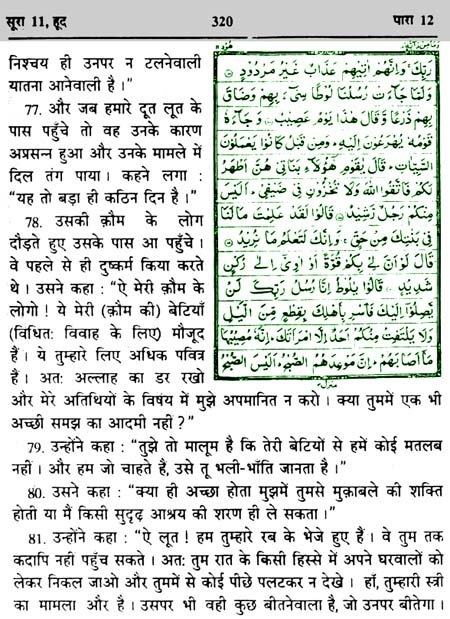 सूरा 11, हूद 320 पारा 12
निश्चय ही उनपर न टलनेवाली
यातना आनेवाली है।”
77. और जब हमारे दूत लूत के
पास पहुँचे तो वह उनके कारण
अप्रसन्न हुआ और उनके मामले में
दिल तंग पाया। कहने लगा :
“यह तो बड़ा ही कठिन दिन है।”
78. उसकी क़ौम के लोग
दौड़ते हुए उसके पास आ पहुँचे।
वे पहले से ही दुष्कर्म किया करते
थे। उसने कहा : “ऐ मेरी क़ौम के
लोगो ! ये मेरी (क़ौम की) बेटियाँ
(विधित: विवाह के लिए) मौजूद
हैं। ये तुम्हारे लिए अधिक पवित्र
हैं। अत: अल्लाह का डर रखो
رَبِّكَ وَاِنَّهُمْ اٰتِيْهِمْ عَذَابٌ غَيْرُ مَرْدُوْدٍ
وَلَمَّا جَآءَتْ رُسُلُنَا لُوْطًا سِيْٓءَ بِهِمْ وَضَاقَ
بِهِمْ ذَرْعًا وَّقَالَ هٰذَا يَوْمٌ عَصِيْبٌ وَجَآءَهٗ
قَوْمُهٗ يُهْرَعُوْنَ اِلَيْهِ وَمِنْ قَبْلُ كَانُوْا يَعْمَلُوْنَ
السَّيِّاٰتِ قَالَ يٰقَوْمِ هٰٓؤُلَآءِ بَنَاتِيْ هُنَّ اَطْهَرُ
لَكُمْ فَاتَّقُوا اللّٰهَ وَلَا تُخْزُوْنِ فِيْ ضَيْفِيْ اَلَيْسَ
مِنْكُمْ رَجُلٌ رَّشِيْدٌ قَالُوْا لَقَدْ عَلِمْتَ مَا لَنَا
فِيْ بَنٰتِكَ مِنْ حَقٍّ وَاِنَّكَ لَتَعْلَمُ مَا نُرِيْدُ
قَالَ لَوْ اَنَّ لِيْ بِكُمْ قُوَّةً اَوْ اٰوِيْٓ اِلٰى رُكْنٍ
شَدِيْدٍ قَالُوْا يٰلُوْطُ اِنَّا رُسُلُ رَبِّكَ لَنْ
يَّصِلُوْٓا اِلَيْكَ فَاَسْرِ بِاَهْلِكَ بِقِطْعٍ مِّنَ الَّيْلِ
وَلَا يَلْتَفِتْ مِنْكُمْ اَحَدٌ اِلَّا امْرَاَتَكَ اِنَّهٗ مُصِيْبُهَا
مَآ اَصَابَهُمْ اِنَّ مَوْعِدَهُمُ الصُّبْحُ اَلَيْسَ الصُّبْحُ
और मेरे अतिथियों के विषय में मुझे अपमानित न करो। क्या तुममें एक भी
अच्छी समझ का आदमी नहीं?”
79. उन्होंने कहा : “तुझे तो मालूम है कि तेरी बेटियों से हमें कोई मतलब
नहीं। और हम जो चाहते हैं, उसे तू भली-भाँति जानता है।”
80. उसने कहा : “क्या ही अच्छा होता मुझमें तुमसे मुक़ाबले की शक्ति
होती या मैं किसी सुदृढ़ आश्रय की शरण ही ले सकता।”
81. उन्होंने कहा : “ऐ लूत! हम तुम्हारे रब के भेजे हुए हैं। वे तुम तक
कदापि नहीं पहुँच सकते। अत: तुम रात के किसी हिस्से में अपने घरवालों को
लेकर निकल जाओ और तुममें से कोई पीछे पलटकर न देखे। हाँ, तुम्हारी स्त्री
का मामला और है। उसपर भी वही कुछ बीतनेवाला है, जो उनपर बीतेगा।